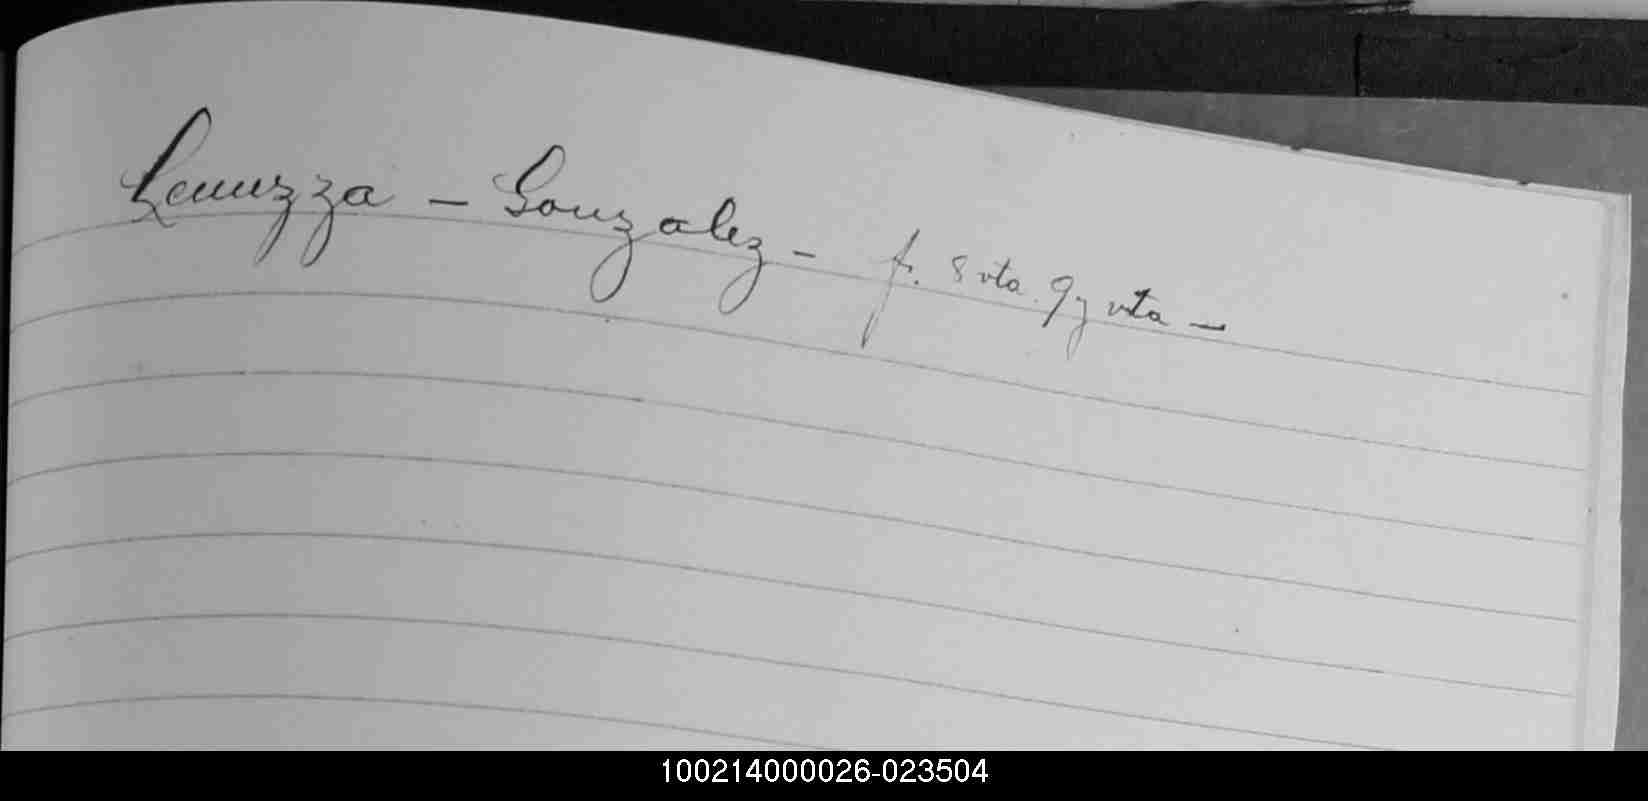 Lemuzza - Gonzalez - f. 8 vta. 9 y vta -
100214000026-023504